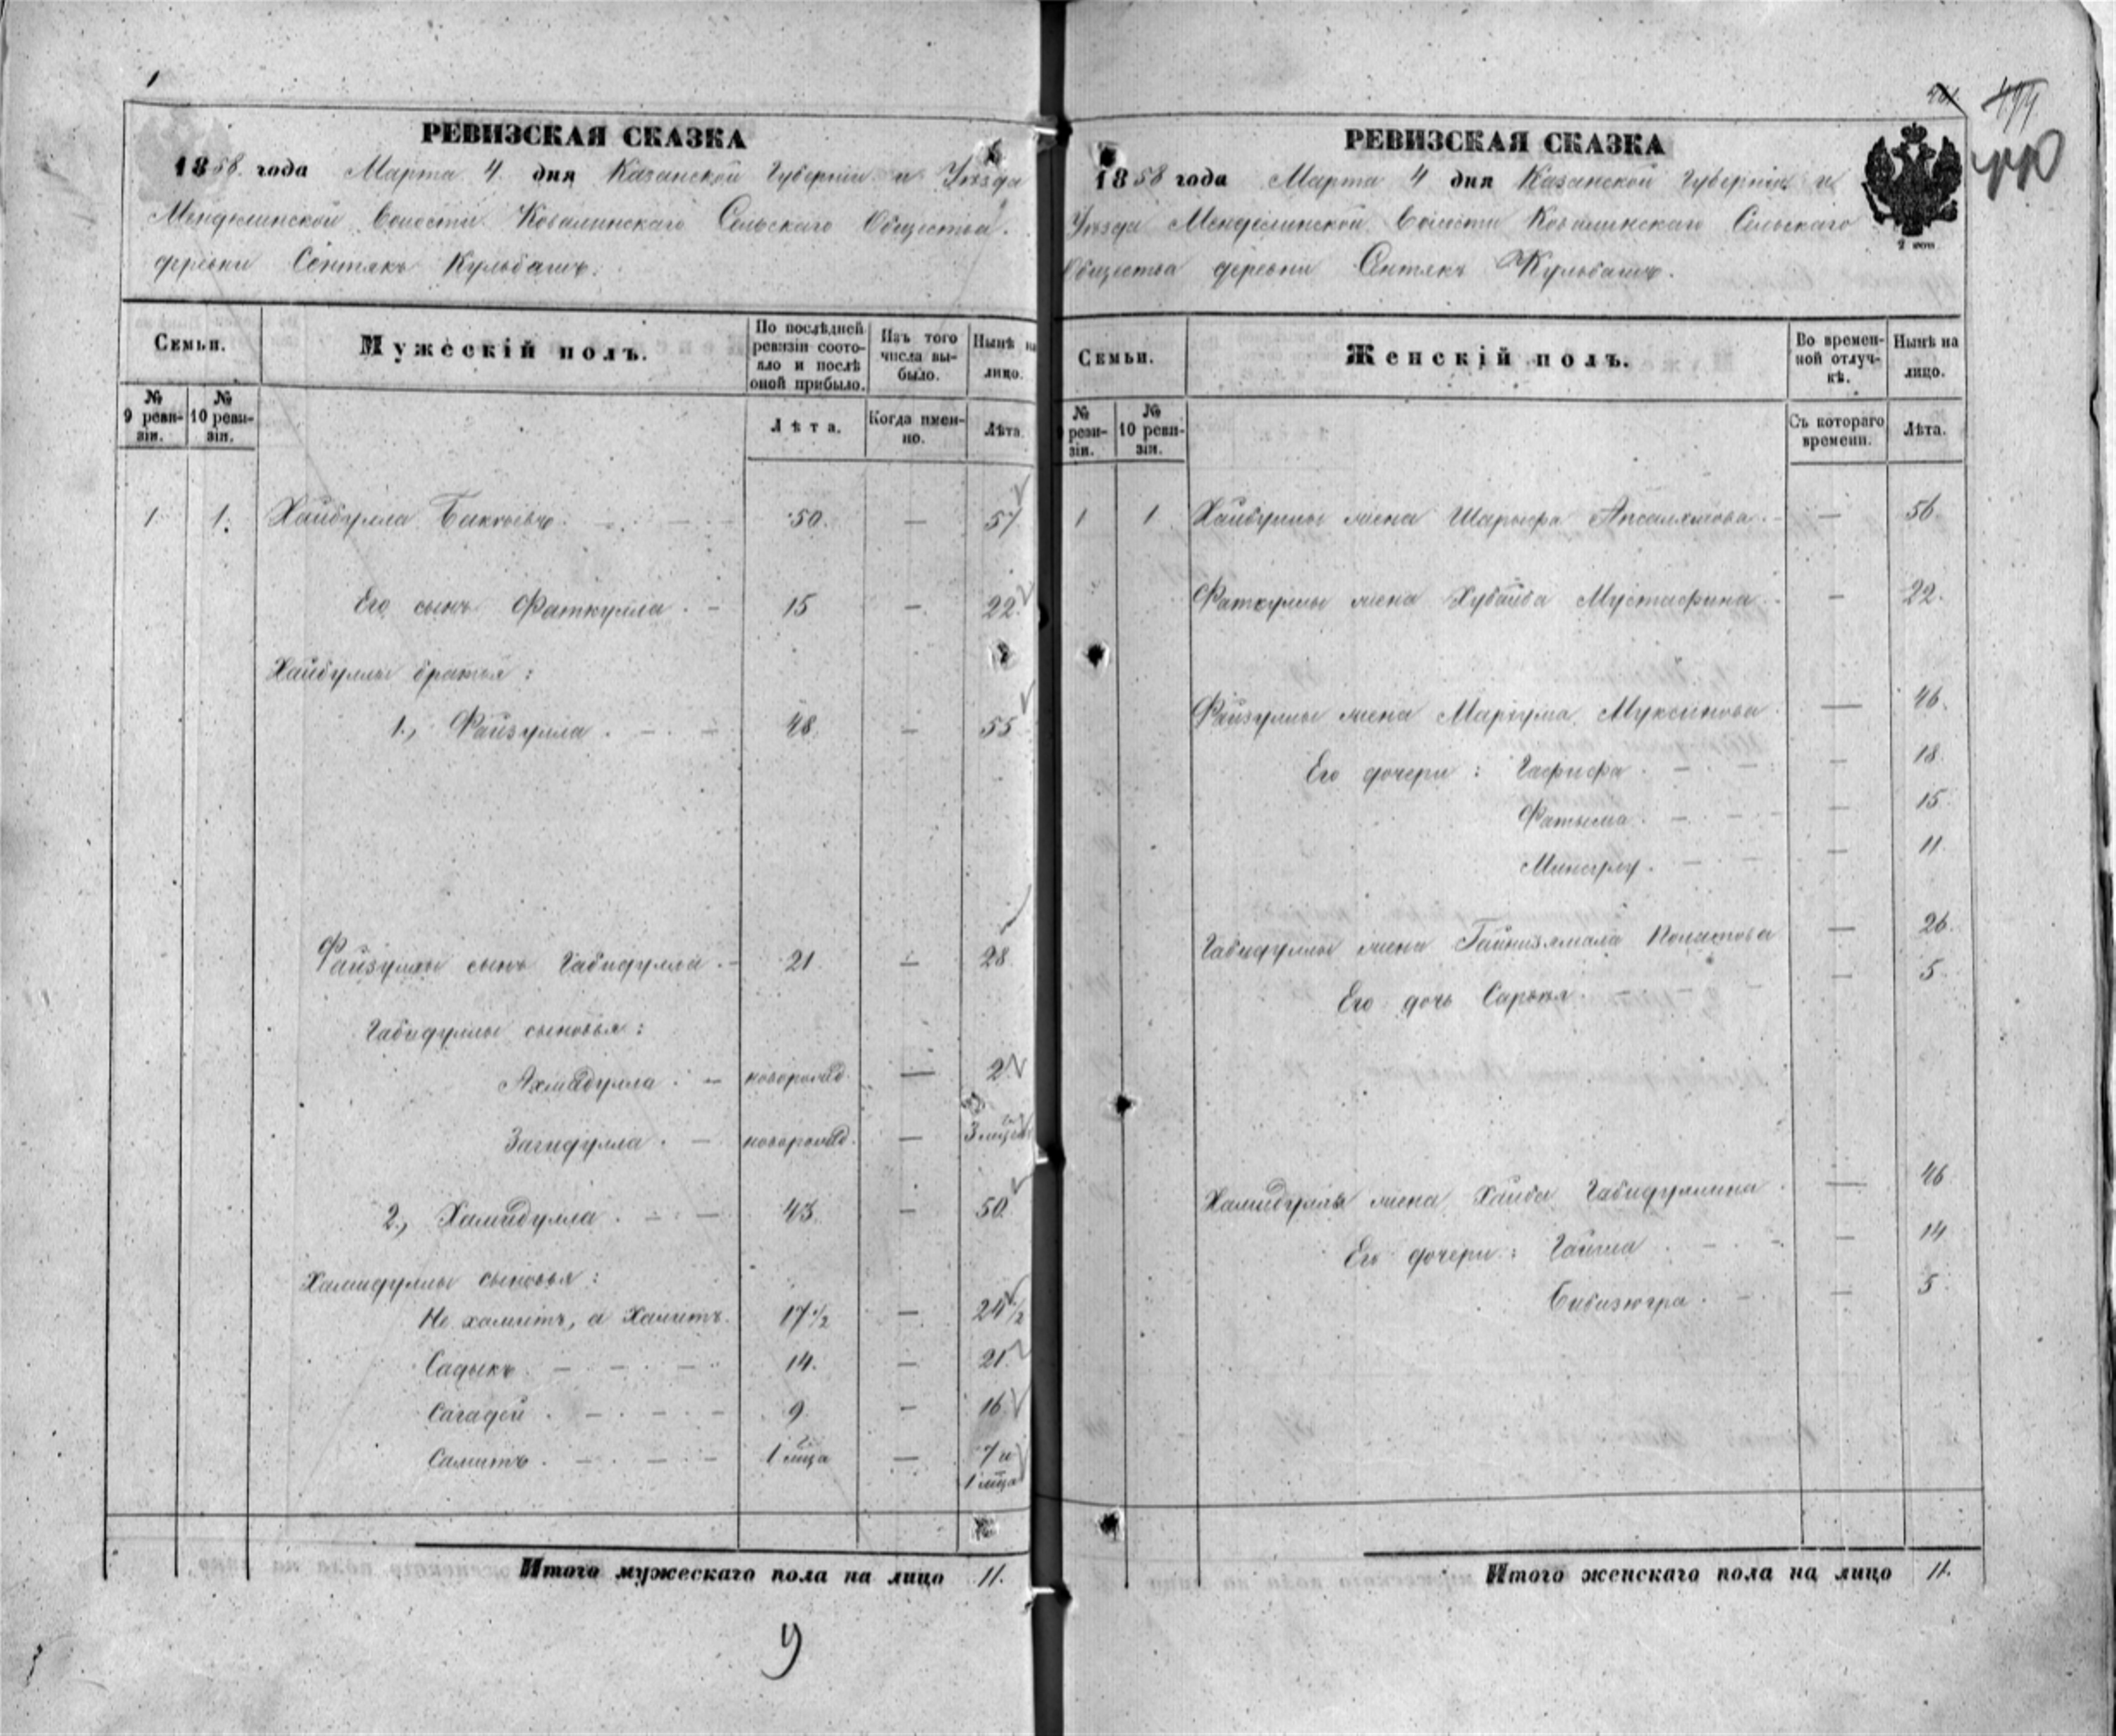 1
РЕВИЗСКАЯ СКАЗКА
1858 года Марта 4 дня Казанской Губернии и Уѣзда
Мендѣлинской Волости Ковалинскаго Сельскаго Общества
деревни Сентякъ Кульбашъ.
Семьи.
Мужескій полъ.
По послѣдней ревизіи состояло и послѣ оной прибыло.
Изъ того числа выбыло.
Нынѣ на лицо.
№ 9 ревизіи.
№ 10 ревизіи.
Лѣта.
Когда именно.
Лѣта.
1 1. Хайбулла 50. — 57
Его сынъ Фаткулла. — 15 — 22.
Хайбуллы братья:
1., Файзулла. — 48 — 55
Файзуллы сынъ Габидулла. — 21 — 28
Габидуллы сыновья:
Ахмадулла. — новорожд. — 2
Загидулла. — новорожд. — 3
2., Хамидулла. — 43 — 50
Хамидуллы сыновья:
Не хамитъ, а Хамитъ. 17 1/2 — 24 1/2
Садыкъ. — 14. — 21.
Сагадей. — 9 — 16
Самитъ. — 1 мца — 7 и
1 мца
Итого мужескаго пола на лицо 11.
9
РЕВИЗСКАЯ СКАЗКА
1858 года Марта 4 дня Казанской Губерніи и
Уѣзда Мендѣлинской Волости Ковалинскаго Сельскаго
Общества деревни Сентякъ Кульбашъ.
Семьи.
Женскій полъ.
Во временной отлучкѣ.
Нынѣ на лицо.
№ ревизіи.
№ 10 ревизіи.
Съ котораго времени.
Лѣта.
1 1 Хайбуллы жена Шарыфа — 56
Фаткуллы жена Хубайба Мустафина. — 22.
Файзуллы жена Маргума Муксинова — 46.
Его дочери: Гафифа. — 18
Фатыма. — 15
Минсылу. — 11
Габидуллы жена Гайнизямала — 26
Его дочь — 5
Хамидуллы жена Хаива Габидуллина. — 46
Его дочери: — 14
Бибизюгра. — 5
Итого женскаго пола на лицо 11.